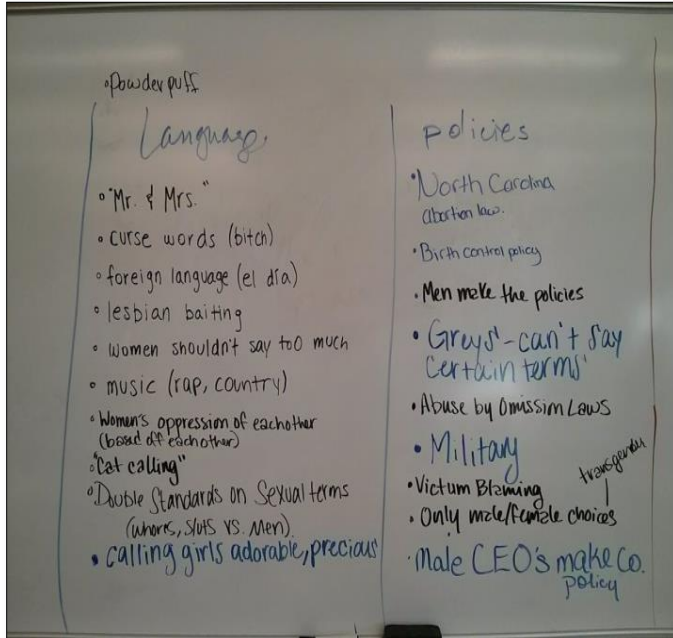 •Powderpuff
Language
• "Mr. & Mrs."
• curse words (bitch)
• foreign language (el día)
• lesbian baiting
• women shouldn't say too much
• music (rap, country)
• Women's oppression of eachother
(based off eachother)
• "Cat calling"
• Double Standards on Sexual terms
(whores, sluts vs. Men).
• calling girls adorable, precious
policies
• North Carolina
abortion law.
• Birth control policy
• Men make the policies
• Greys'-can't say
certain terms'
• Abuse by Omission Laws
• Military
• Victum Blaming
transgender
• Only male/female choices
• Male CEO's make Co.
policy